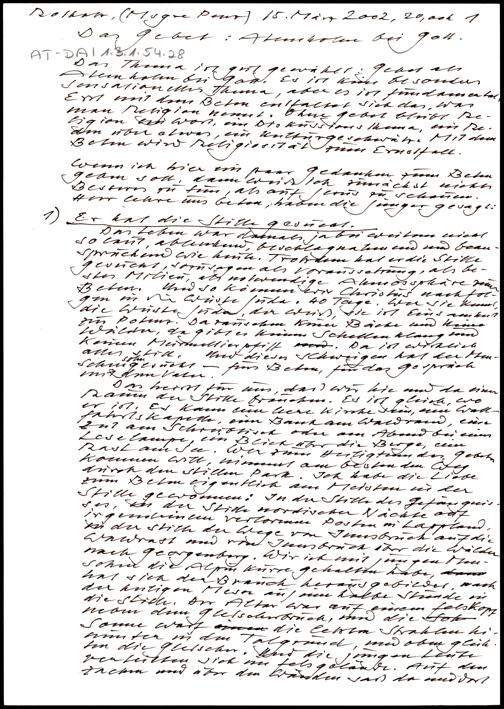 Rotholz, (Msgre Penz) 15. März 2002, 20,00h 1
Das Gebet: Atemholen bei Gott.
AT-DA 1.3.1.54.28
Das Thema ist gut gewählt: Gebet als
Atemholen bei Gott. Es ist kein besonders
sensationelles Thema, aber es ist fundamental.
Erst mit dem Beten entfaltet sich das, was
man Religion nennt. Ohne Gebet bleibt Re-
ligion ein Wort, ein Diskussionsthema, ein Re-
den über etwas, ein Kulturgeschwätz. Mit dem
Beten wird Religiosität zum Ernstfall.
Wenn ich hier ein paar Gedanken zum Beten
geben soll, dann weiß ich zunächst nichts
Besseres zu tun, als auf Jesus zu schauen.
Herr lehre uns beten, haben die Jünger gesagt:
1) Er hat die Stille gesucht.
Das Leben war damals, ja bei weitem nicht
so laut, ablenkend, beschlagnahmend und bean-
spruchend wie heute. Trotzdem hat er die Stille
gesucht, sozusagen als Voraussetzung, als be-
stes Milieu, als notwendige Atmosphäre zum
Beten. Und so können wir Christus nach fol-
gen in die Wüste Juda. 40 Tage. Wer sie kennt,
die Wüste Juda, der weiß, sie ist Einsamkeit
zur Potenz. Da rauschen keine Bäche und keine
Wälder, da gibt es keinen Schellenklang und
keinen Murmeltierpfiff. Da ist wirklich
alles still. Und dieses Schweigen hat der Men-
schensohn gesucht – fürs Beten, für das Gespräch
mit dem Vater.
Das heisst für uns, dass wir hie und da einen
Raum der Stille brauchen. Es ist gleich, wo
er ist. Es kann eine leere Kirche sein, eine Wall-
fahrtskapelle, eine Bank am Waldrand, eine
Zeit am Schreibtisch oder am Abend bei einer
Leselampe, ein Blick über die Berge, eine
Rast am See. Wer zum Heiligtum des Gebets
kommen will, nimmt am besten den Weg
durch den stillen Park. Ich habe die Liebe
zum Beten eigentlich am Meisten in der
Stille gewonnen: In der Stille des Gefängnis-
ses, in der Stille nordischer Nächte auf
irgendeinem verlorenen Posten in Lappland.
In der Stille der Wege von Innsbruck auf die
Waldrast und von Innsbruck über die Wälder
nach Georgenberg. Wir ich mit jungen Men-
schen die Alpin Kurse gehalten habe,
hat sich der Brauch herausgebildet, nach
der heiligen Messe auf eine halbe Stunde in
die Stille. Der Altar war auf einem Felskopf
neben dem Gletscherbruch, und die
Sonne warf die letzten Strahlen hi-
nunter in den Talgrund, und oben glüh-
ten die Gletscher. Und die jungen Leute
verteilten sich im Felsgelände. Auf den
Zacken und über den Wänden sass da und dort